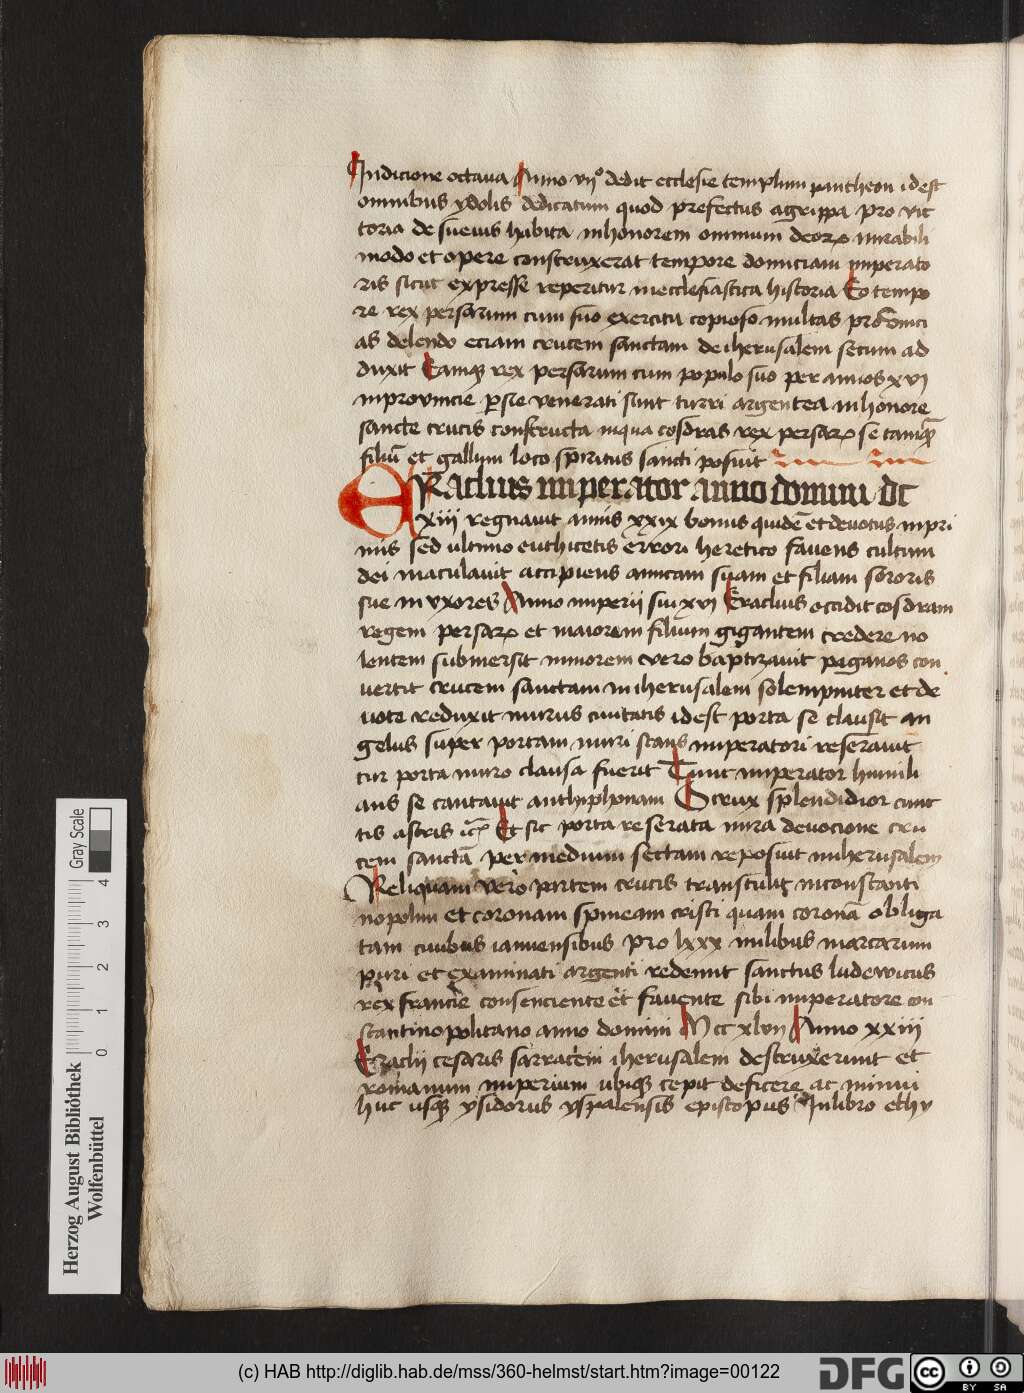 Indicione octaua Anno vii° dedit ecclesie templum pantheon idest
omnibus ydolis dedicatum quod prefectus agrippa pro vic
toria de sueuis habita inhonorem omnium deorꝝ mirabili
modo et opere construxerat tempore domiciani imperato
ris sicut expresse reperitur inecclesiastica historia Eo tempo
re rex persarum cum suo exercitu copioso multas prouinci
as delendo eciam crucem sanctam de iherusalem secum ad
duxit Eamqꝫ rex persarum cum populo suo per annos xvi
inprovincie persie venerati sunt turri argentea inhonore
sancte crucis constructa inqua cosdras rex persarꝝ se tamqꝫ
filiū et gallum loco spiritus sancti posuit
ERaclius imperator anno domini dc
xiii regnauit annis xxix bonus quidē et deuotus inpri
mis sed ultimo euthicetis errori heretico fauens cultum
dei maculauit accipiens amicam suam et filiam sororis
sue in vxores Anno imperii sui xvi Eraclius occidit cosdram
regem persarꝝ et maiorem filium gigantem credere no
lentem submersit minorem vero baptizauit paganos con
uertit crucem sanctam in iherusalem solempniter et de
uote reduxit murus ciuitatis idest porta se clausit an
gelus super portam muri stans imperatori reserauit
cur porta muro clausa fuerit Tunc imperator humili
ans se cantauit anthiphonam O crux splendidior cunc
tis astris ic̄ Et sic porta reserata mira deuocione cru
cem sanctā per medium sectam reposuit iniherusalem
Reliquam vero partem crucis transtulit inconstanti
nopolim et coronam spineam cristi quam coronā obliga
tam ciuibus ianuensibus pro lxxx milibus marcarum
puri et examinati argenti redemit sanctus ludewicus
rex francie consenciente et fauente sibi imperatore con
stantinopolitano anno domini M cc xlvii Anno xxiii
Eraclii cesaris sarraceni iherusalem destruxerunt et
romanum imperium ubiqꝫ cepit deficere ac minui
huc usqꝫ ysidorus yspalensis episcopus Inlibro ethy
Herzog August Bibliothek
Wolfenbüttel
0 1 2 3 4
Gray Scale
(c) HAB http://diglib.hab.de/mss/360-helmst/start.htm?image=00122
DFG
cc BY SA